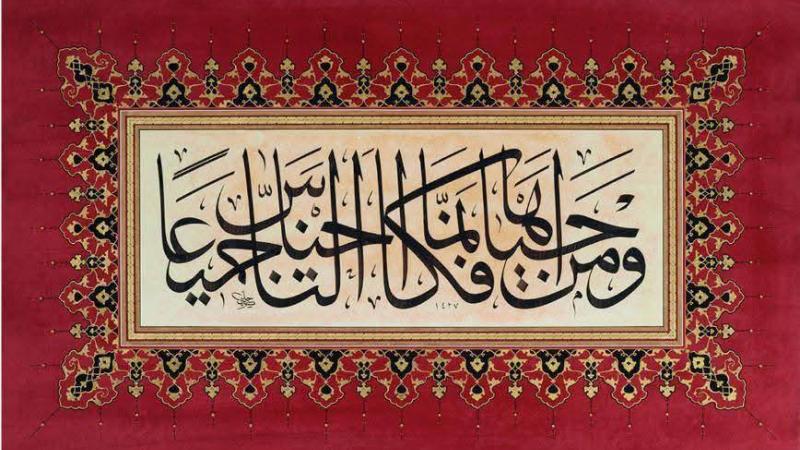 وَمَنْ أَحْيَاهَا فَكَأَنَّمَا أَحْيَا النَّاسَ جَمِيعًا
١٤٢٧